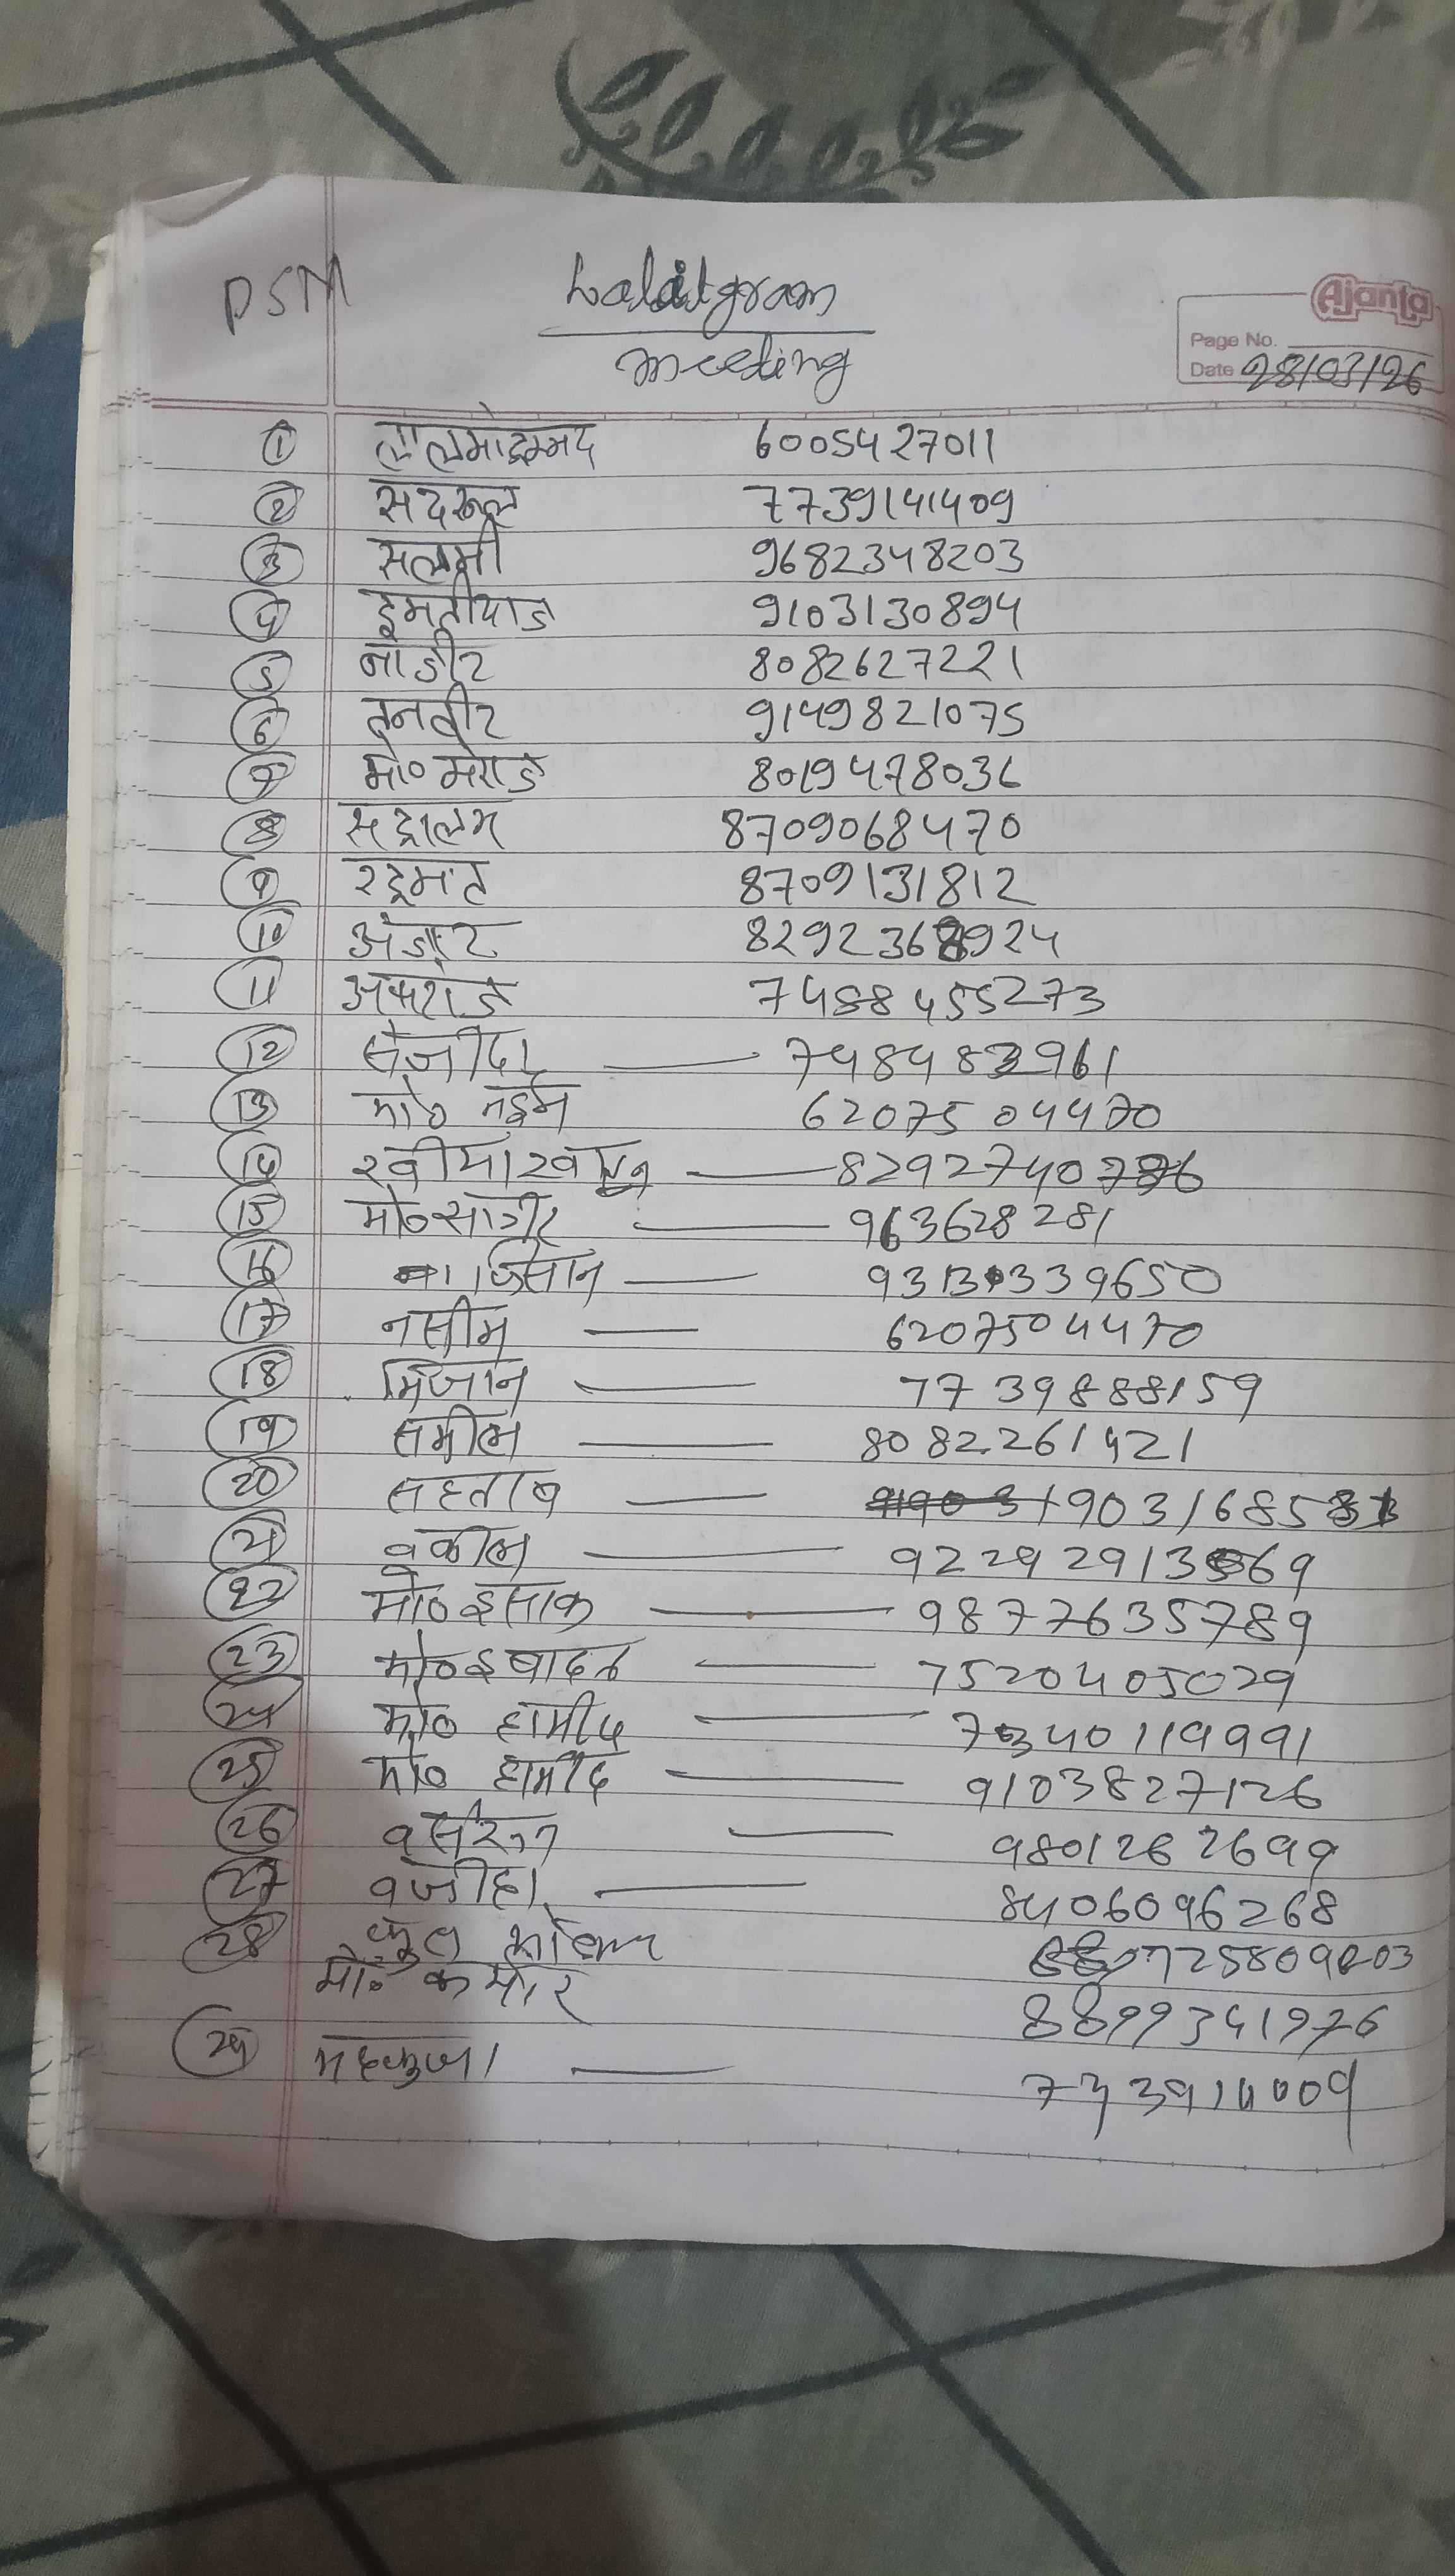 PSM
Lalitgram
meeting
Ajanta
Page No.
Date 28/03/26
① लालमोहम्मद 6005427011
② सदरूल 7739141409
③ सलमी 9682348203
④ इमतीयाज 9103130894
⑤ नाजीर 8082627221
⑥ तनवीर 9149821075
⑦ मो० मेराज 8019478036
⑧ सद्रालम 8709068470
⑨ रहमत 8709131812
⑩ 8292368924
⑪ अफरोज 7488455273
⑫ सजीदा 748483961
⑬ मो० नईम 6207504470
⑭ 8292740776
⑮ मो० सागीर 963628281
⑯ 9313339650
⑰ नसीम 6207504470
⑱ मिजान 7739888159
⑲ समील 8082261421
⑳ सहताब
㉑ वकील
㉒ मो० इसाक 9877635789
㉓ मो० इबादत 7520405029
㉔ मो० हामीद 7340119991
㉕ मो० हामीद 9103827126
㉖ 9801262699
㉗ वजीहा 8406096268
㉘
मो० कमार 8899341976
㉙